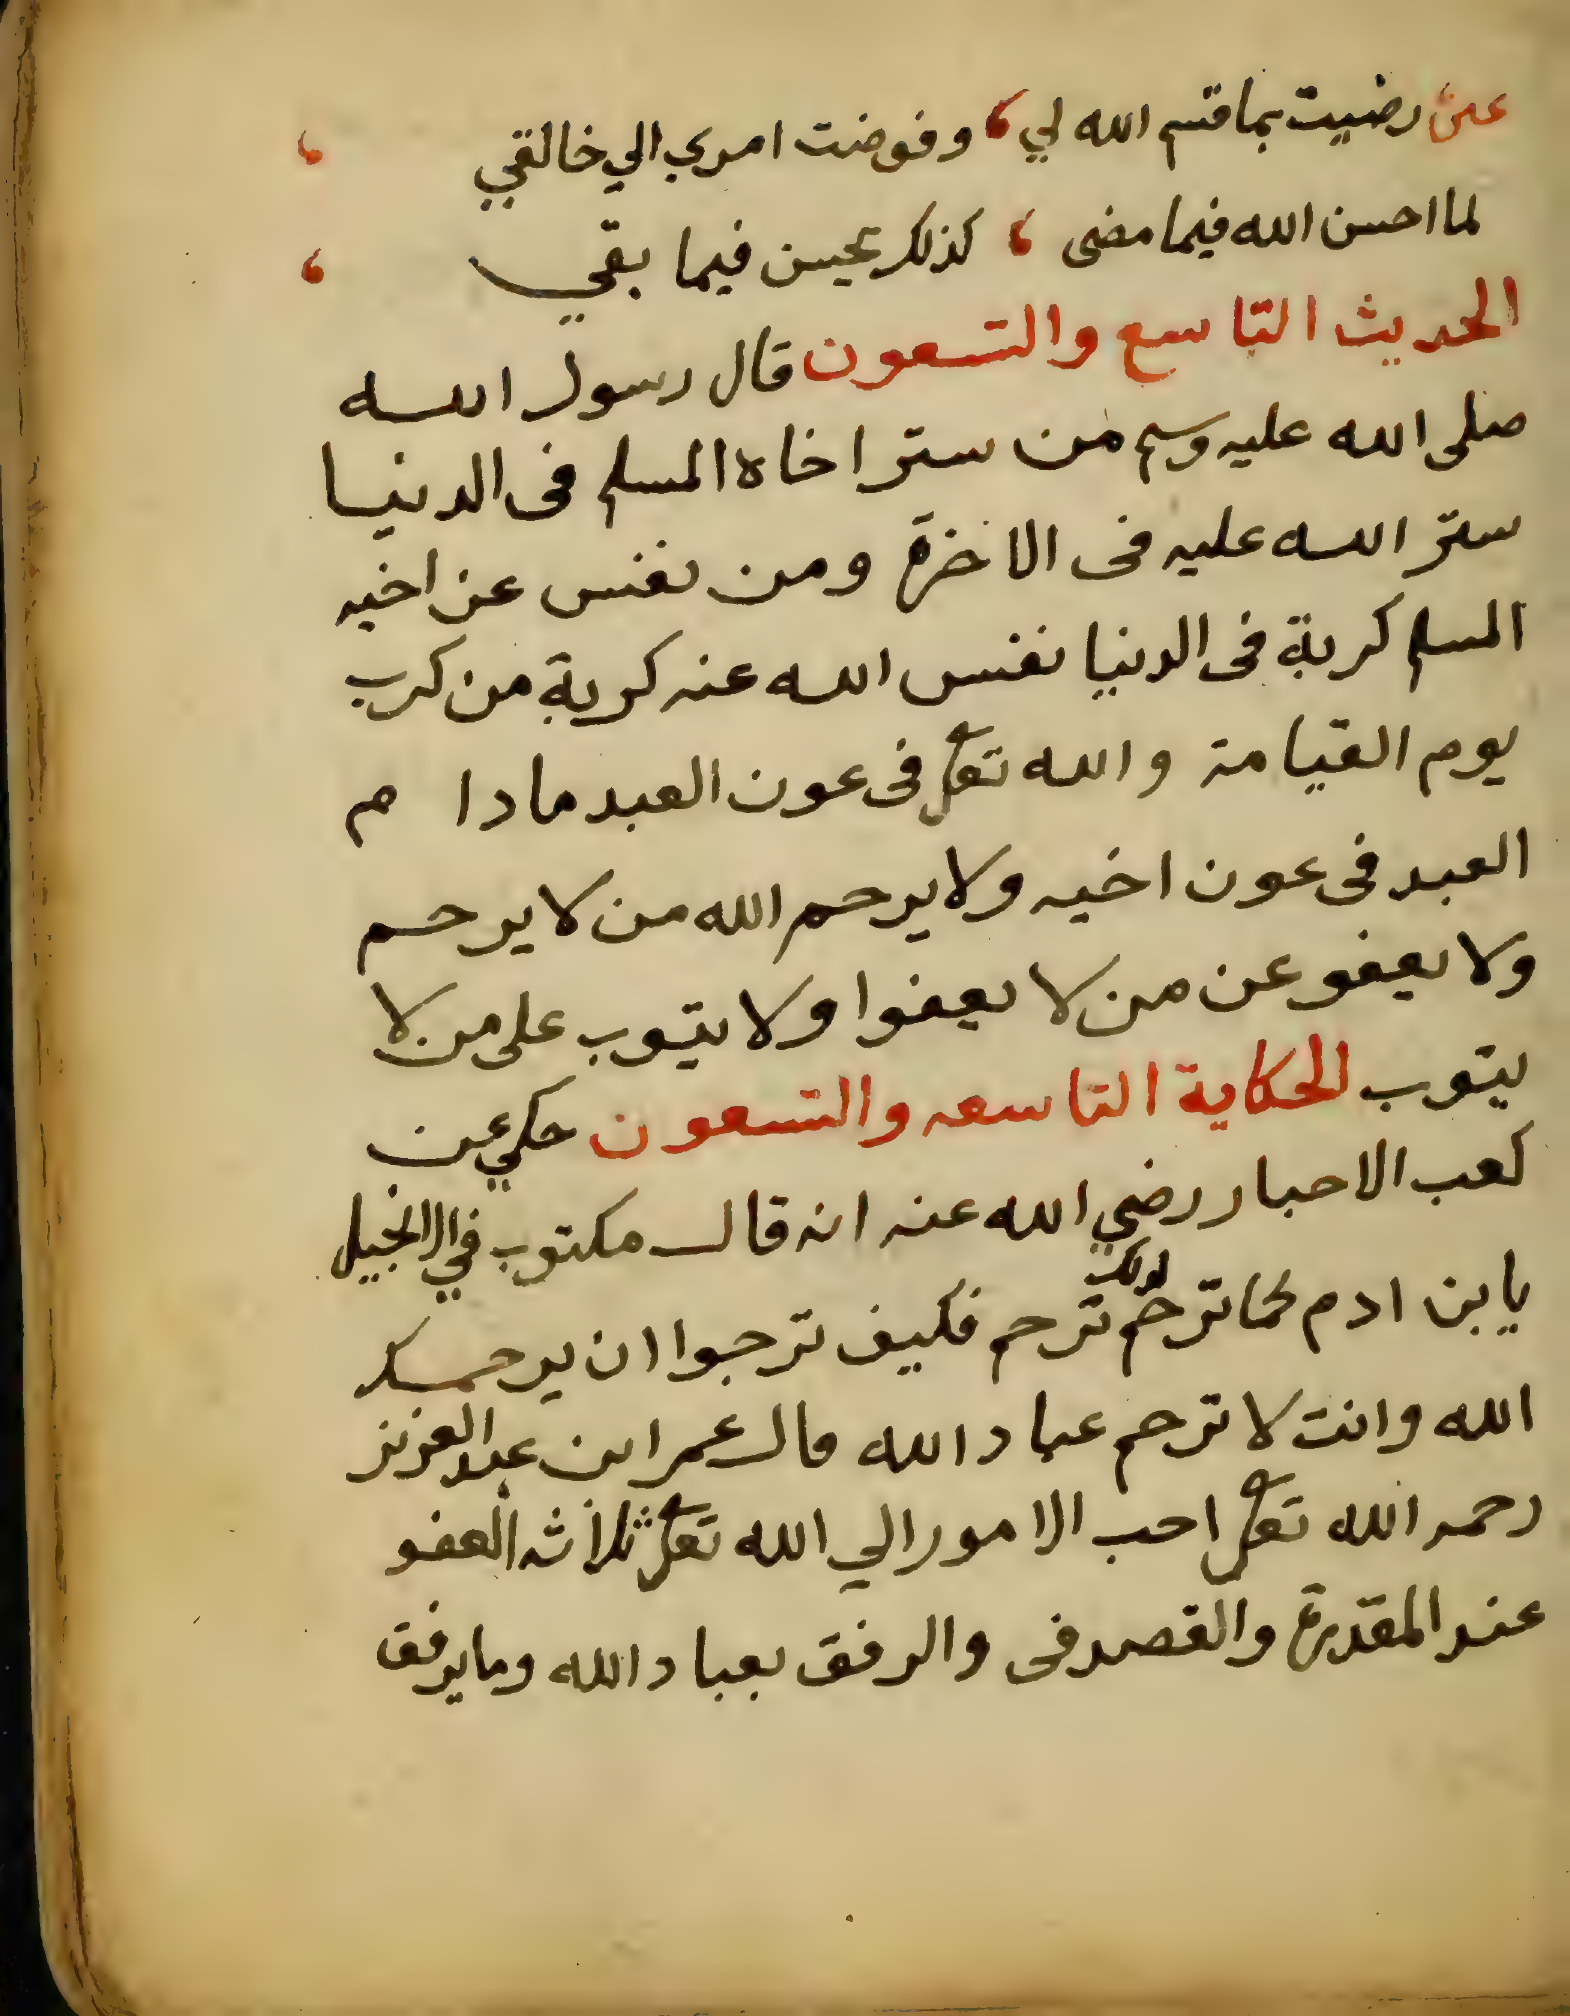 رضيت بما قسم الله لي ، وفوضت امري الي خالقي ،
لما احسن الله فيما مضى ، كذلك يحسن فيما بقي ،
الحديث التاسع والتسعون قال رسول الله
صلى الله عليه وسلم من ستر اخاه المسلم فى الدنيا
ستر الله عليه فى الاخرة ومن نفس عن اخيه
المسلم كربة فى الدنيا نفس الله عنه كربة من كرب
يوم القيامة والله تعالى فى عون العبد ما دا م
العبد فى عون اخيه ولا يرحم الله من لا يرحم
ولا يعفو عن من لا يعفوا ولا يتوب على من لا
يتوب الحكاية التاسعه والتسعون حكي عن
كعب الاحبار رضي الله عنه انه قال مكتوب في الانجيل
يا بن ادم كما ترحم كذلك ترحم فكيف ترجوا ان يرحمك
الله وانت لا ترحم عباد الله قال عمر ابن عبد العزيز
رحمه الله تعالى احب الامور الي الله تعالى ثلاثه العفو
عند المقدرة والقصد فى والرفق بعباد الله وما يرفق